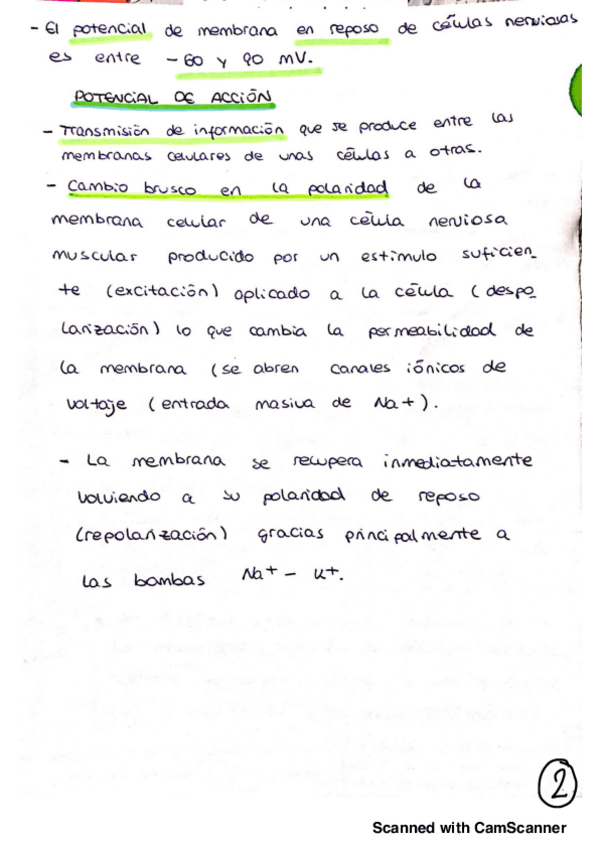 - El potencial de membrana en reposo de células nerviosas
es entre - 60 y 90 mV.
POTENCIAL DE ACCIÓN
- Transmisión de información que se produce entre las
membranas celulares de unas células a otras.
- Cambio brusco en la polaridad de la
membrana celular de una célula nerviosa
muscular producido por un estimulo suficien_
te (excitación) aplicado a la célula (despo_
larización) lo que cambia la permeabilidad de
la membrana (se abren canales iónicos de
voltaje (entrada masiva de Na+).
- La membrana se recupera inmediatamente
volviendo a su polaridad de reposo
(repolarización) gracias principalmente a
las bombas Na+ - K+.
2
Scanned with CamScanner